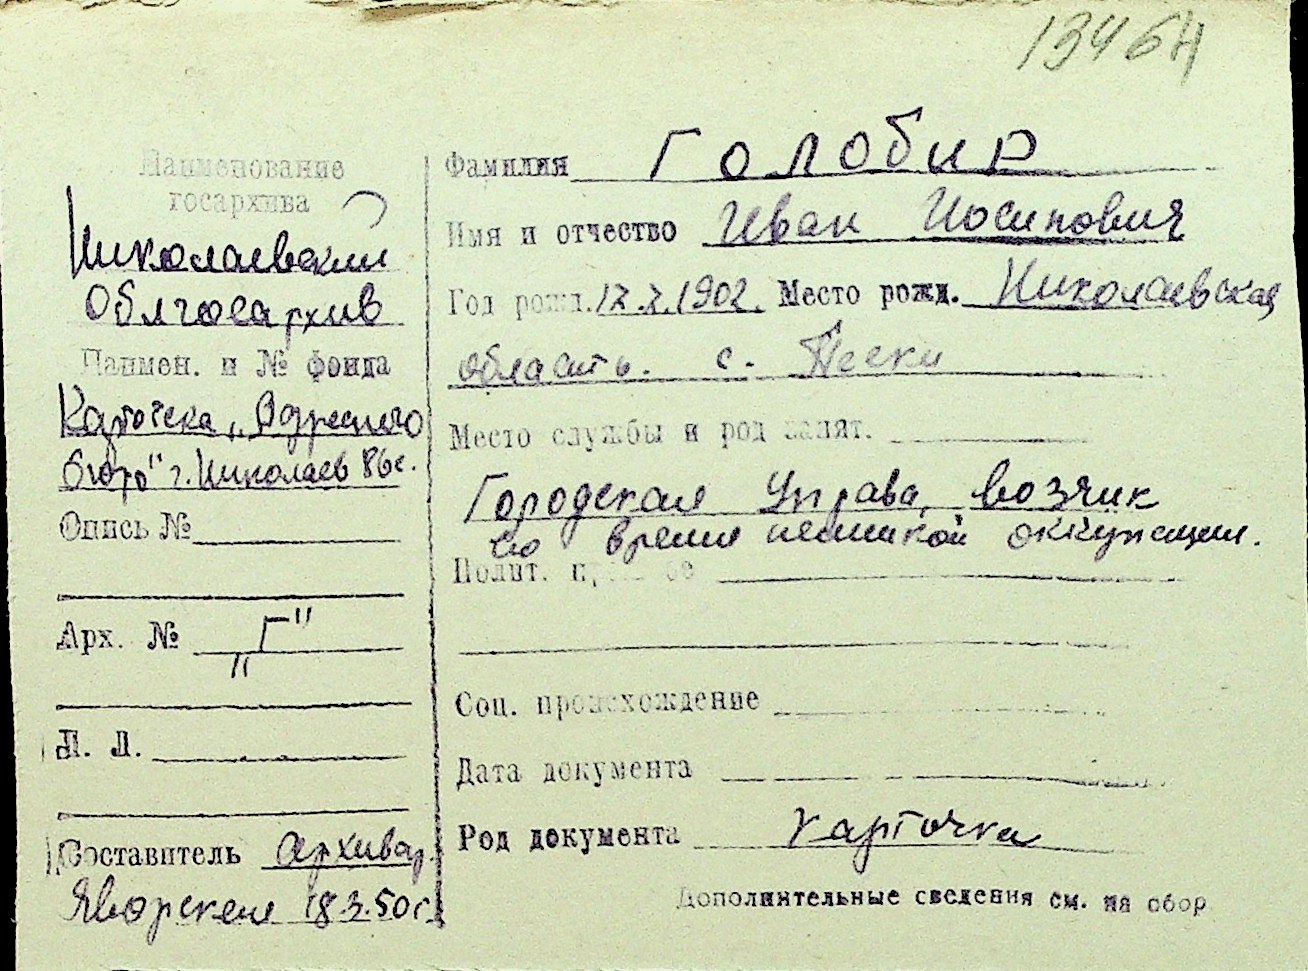 13464
Наименование
госархива
Николаевский
Облгосархив
Наимен. и № фонда
Картотека „Адресного
бюро" г. Николаев 86с.
Опись №
Арх. № „Г"
Л. Л.
Составитель Архивар.
Яворская 18.3.50 г.
Фамилия Голобир
Имя и отчество Иван Иосипович
Год рожд. 17.2.1902. Место рожд. Николаевская
область. с. Пески
Место службы и род занят.
Городская Управа, возчик
во время немецкой оккупации.
Полит.
Соц. происхождение
Дата документа
Род документа карточка
Дополнительные сведения см. на обор